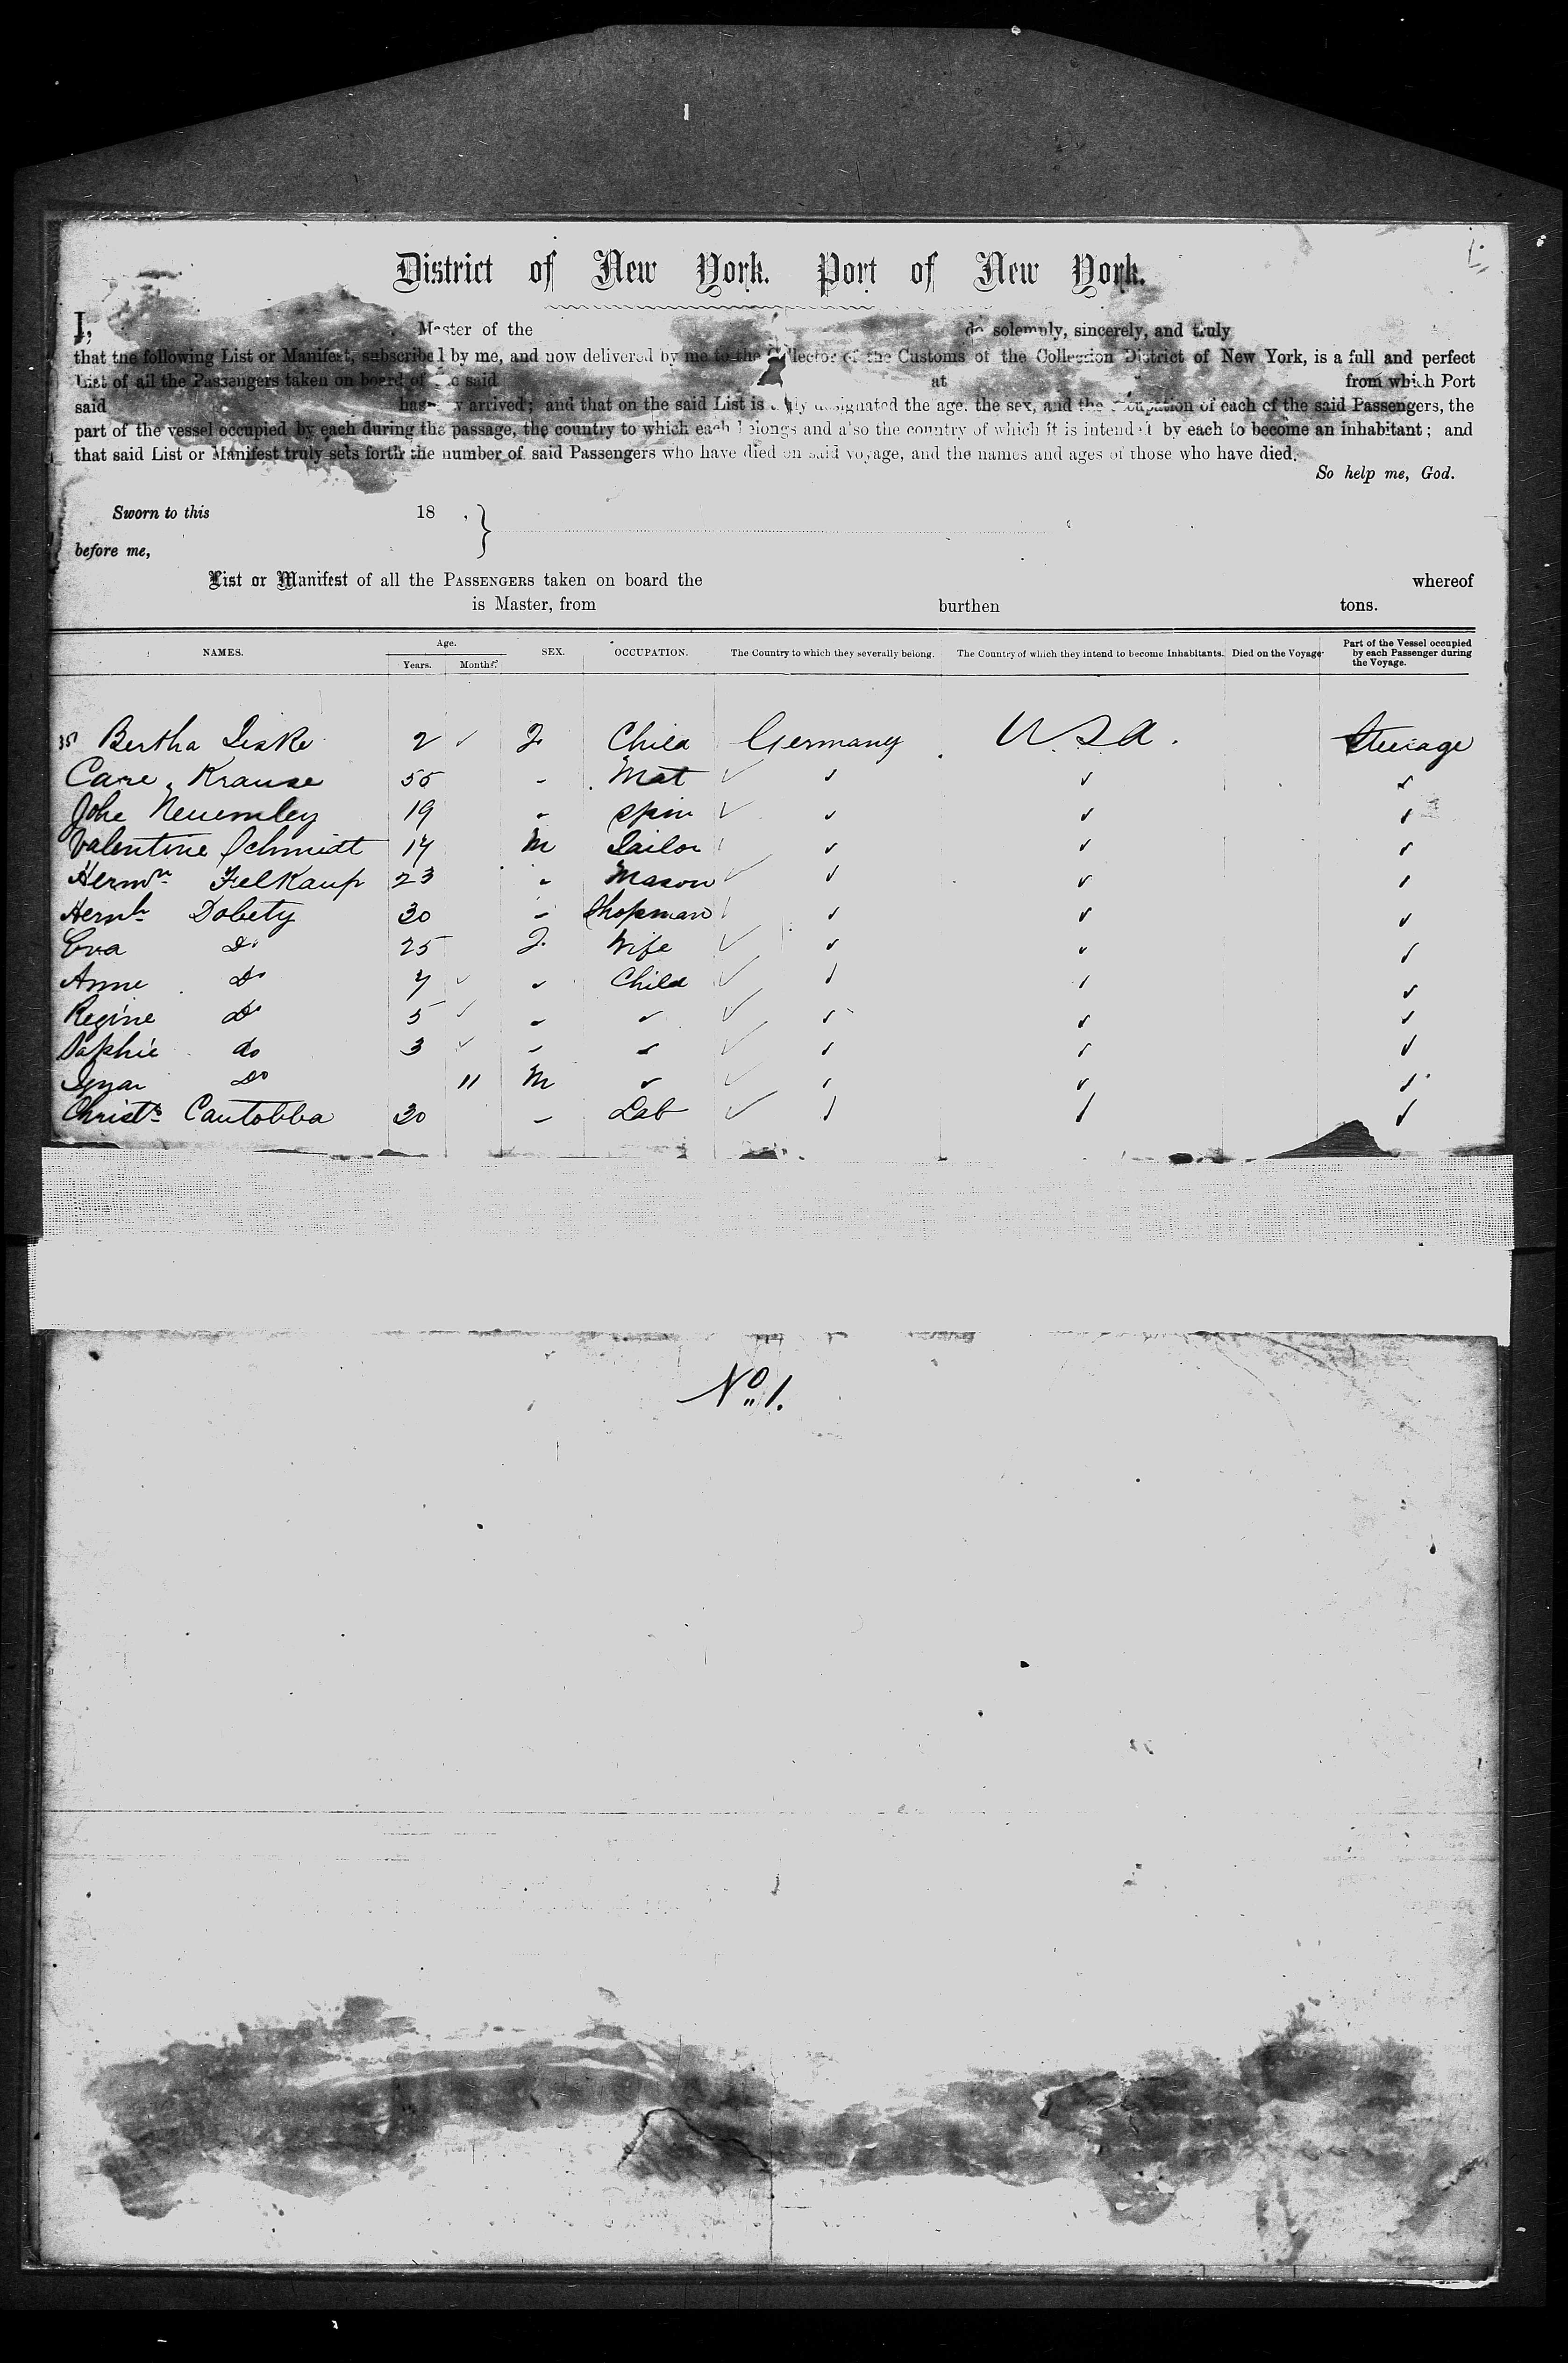 District of New York. Port of New York.
I, Master of the do solemnly, sincerely, and truly
that the following List or Manifest, subscribed by me, and now delivered by me to the Collector of the Customs of the Collection District of New York, is a full and perfect
List of all the Passengers taken on board of the said at from which Port
said has now arrived; and that on the said List is truly designated the age, the sex, and the occupation of each of the said Passengers, the
part of the vessel occupied by each during the passage, the country to which each belongs and also the country of which it is intended by each to become an inhabitant; and
that said List or Manifest truly sets forth the number of said Passengers who have died on said voyage, and the names and ages of those who have died.
So help me, God.
Sworn to this 18 ,
before me,
List or Manifest of all the PASSENGERS taken on board the whereof
is Master, from burthen tons.
NAMES. Age. Years. Months. SEX. OCCUPATION. The Country to which they severally belong. The Country of which they intend to become Inhabitants. Died on the Voyage Part of the Vessel occupied by each Passenger during the Voyage.
Bertha Liske 2 F. Child Germany U.S.A. Steerage
Krause 55 Mat
19 Spin
Valentine Schmidt 17 M Tailor
Hermn Felkaup 23 Mason
Dobety 30 Shopman
Eva Do 25 F. Wife
Anne Do 7 Child
Regine Do 5
Sophie do 3
Do 11 M
Cantobba 30 Lab
No. 1.